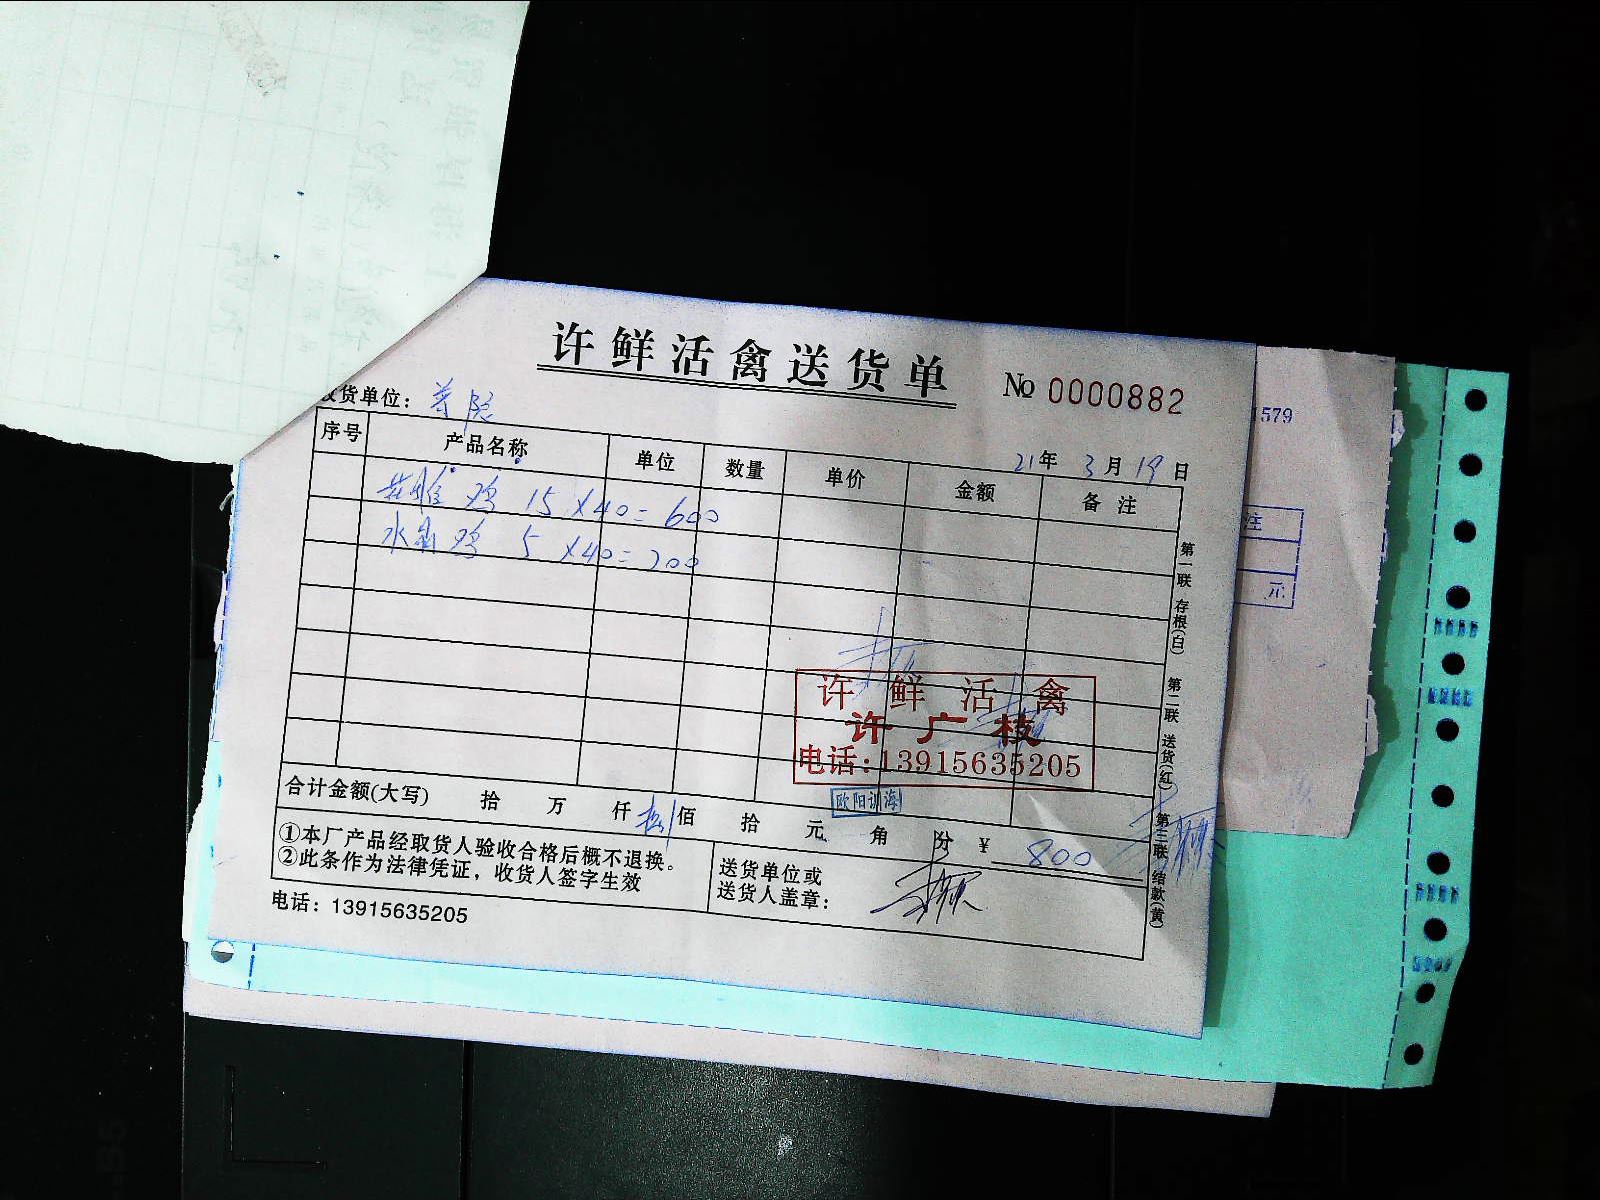 许鲜活禽送货单
№ 0000882
货单位：
21年 3月 19日
序号 产品名称 单位 数量 单价 金额 备注
鸡 15 X40=600
水晶鸡 5 X40=200
第一联 存根(白) 第二联 送货(红) 第三联 结款(黄)
许鲜活禽
许广枝
电话:13915635205
欧阳训海
合计金额(大写) 拾 万 仟 捌佰 拾 元 角 分 ¥ 800
①本厂产品经取货人验收合格后概不退换。
②此条作为法律凭证，收货人签字生效
送货单位或
送货人盖章：
电话：13915635205
1579
注
元